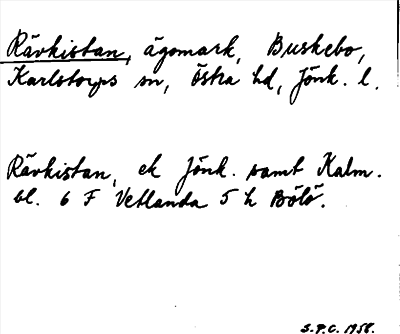 Rävkistan, ägomark, Buskebo,
Karlstorps sn, Östra hd, Jönk. l.
Rävkistan, ek Jönk. samt Kalm.
bl. 6 F Vetlanda 5 h Bölö.
S.P.C. 1958.